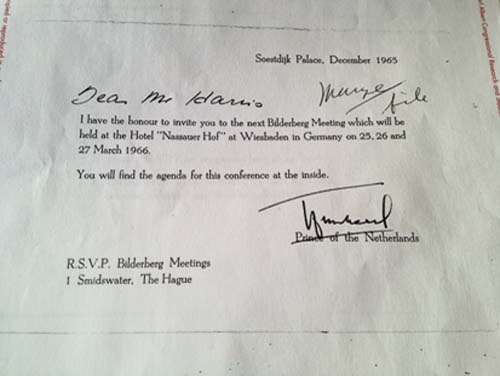 Soestdijk Palace, December 1965
Dear Mr Harris
file
I have the honour to invite you to the next Bilderberg Meeting which will be
held at the Hotel "Nassauer Hof" at Wiesbaden in Germany on 25, 26 and
27 March 1966.
You will find the agenda for this conference at the inside.
Prince of the Netherlands
R.S.V.P. Bilderberg Meetings
1 Smidswater, The Hague